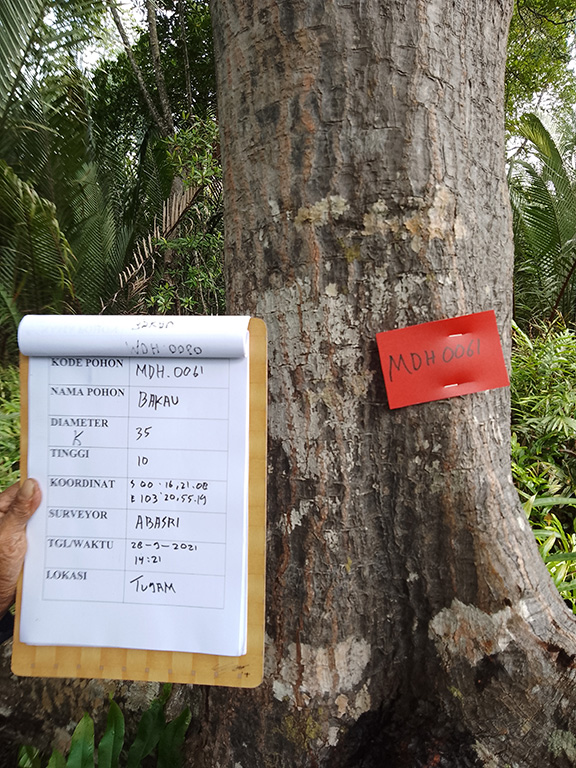 MDH 0080
KODE POHON MDH.0061
NAMA POHON BAKAU
DIAMETER K 35
TINGGI 10
KOORDINAT S 00.16,21.08
E 103°20,55.19
SURVEYOR ABASRI
TGL/WAKTU 28-9-2021
14:21
LOKASI
MDH 0061